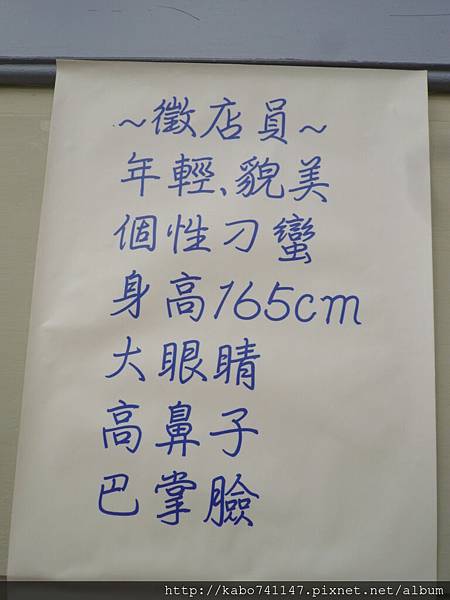 ~徵店員~
年輕、貌美
個性刁蠻
身高165cm
大眼睛
高鼻子
巴掌臉
http://kabo741147.pixnet.net/album